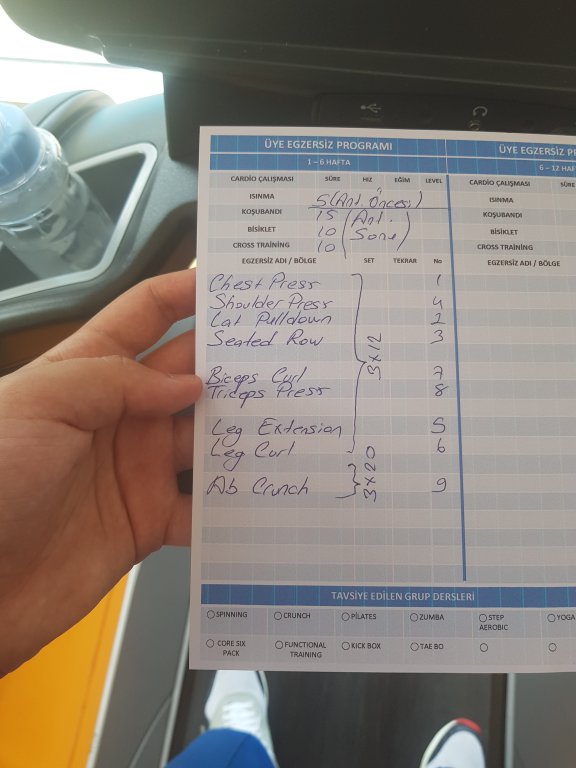 ÜYE EGZERSİZ PROGRAMI
1 – 6 HAFTA
CARDİO ÇALIŞMASI SÜRE HIZ EĞİM LEVEL
ISINMA 5 (Ant. Öncesi)
KOŞUBANDI 15 (Ant.
BİSİKLET 10 Sonu)
CROSS TRAINING 10
EGZERSİZ ADI / BÖLGE SET TEKRAR No
Chest Press 1
Shoulder Press 4
Lat Pulldown 2
Seated Row 3
3x12
Biceps Curl 7
Triceps Press 8
Leg Extension 5
Leg Curl 6
Ab Crunch 3x20 9
ÜYE EGZERSİZ
6 – 12
CARDİO ÇALIŞMASI SÜRE
ISINMA
KOŞUBANDI
BİSİKLET
CROSS TRAINING
EGZERSİZ ADI / BÖLGE
TAVSİYE EDİLEN GRUP DERSLERİ
SPINNING CRUNCH PİLATES ZUMBA STEP AEROBIC YOGA
CORE SIX PACK FUNCTIONAL TRAINING KICK BOX TAE BO